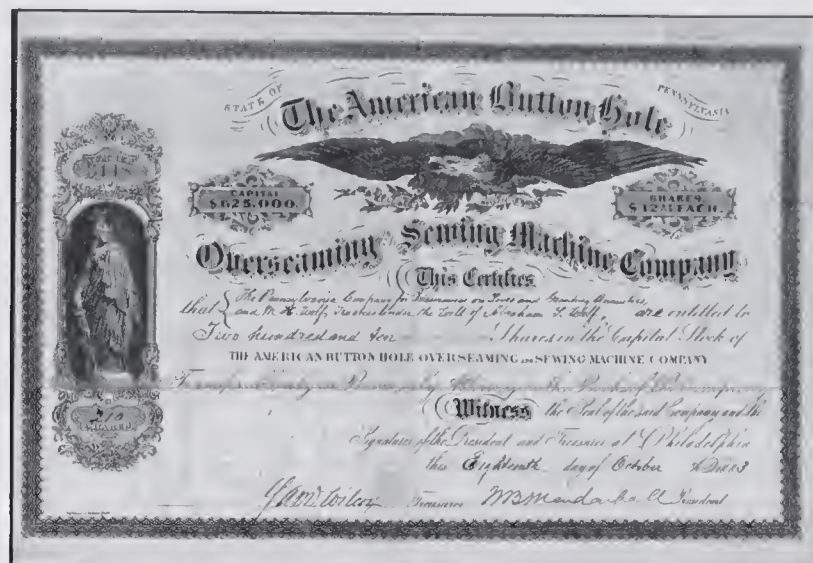 STATE OF PENNSYLVANIA
The American Button Hole
CAPITAL
$625,000.
SHARES,
$12½ EACH.
Overseaming Sewing Machine Company
This Certifies
that The Pennsylvania Company for Insurances on Lives and Granting Annuities,
and W. H. Wolf, Trustees under the Will of Abraham S. Wolf, are entitled to
Two hundred and ten Shares in the Capital Stock of
THE AMERICAN BUTTON HOLE OVERSEAMING AND SEWING MACHINE COMPANY
Transferable only in Person or by Attorney on the Books of the Company
Witness the Seal of the said Company and the
Signatures of the President and Treasurer at Philadelphia
this Eighteenth day of October
Treasurer President